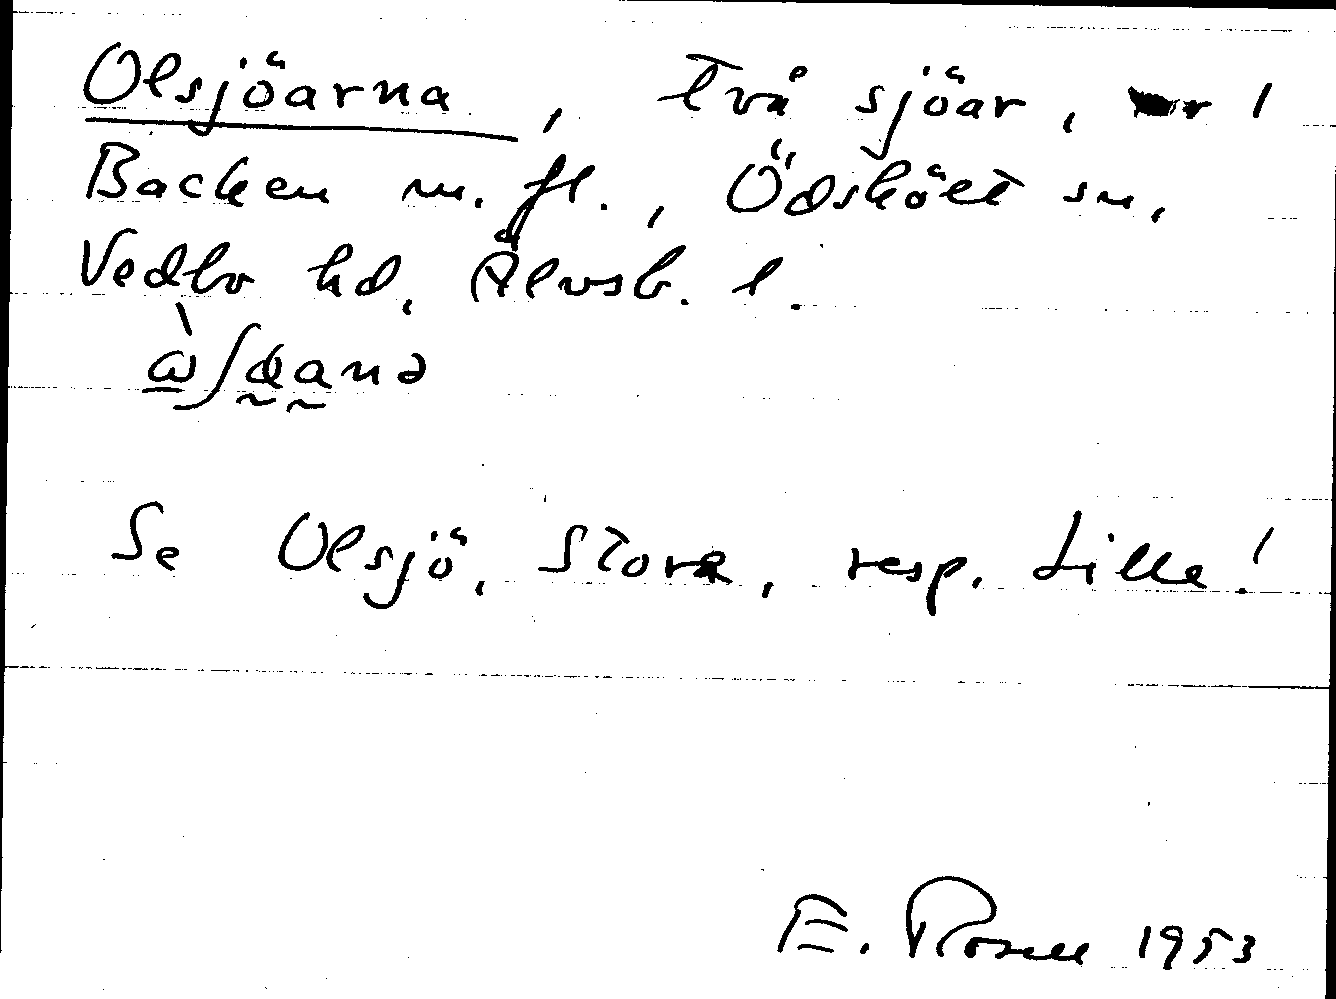 Olsjöarna, två sjöar, nr 1
Backen m. fl., Ödskölt sn,
Vedbo hd, Älvsb. l.
Se Olsjö, Stora, resp. Lilla!
E. Rosell 1953